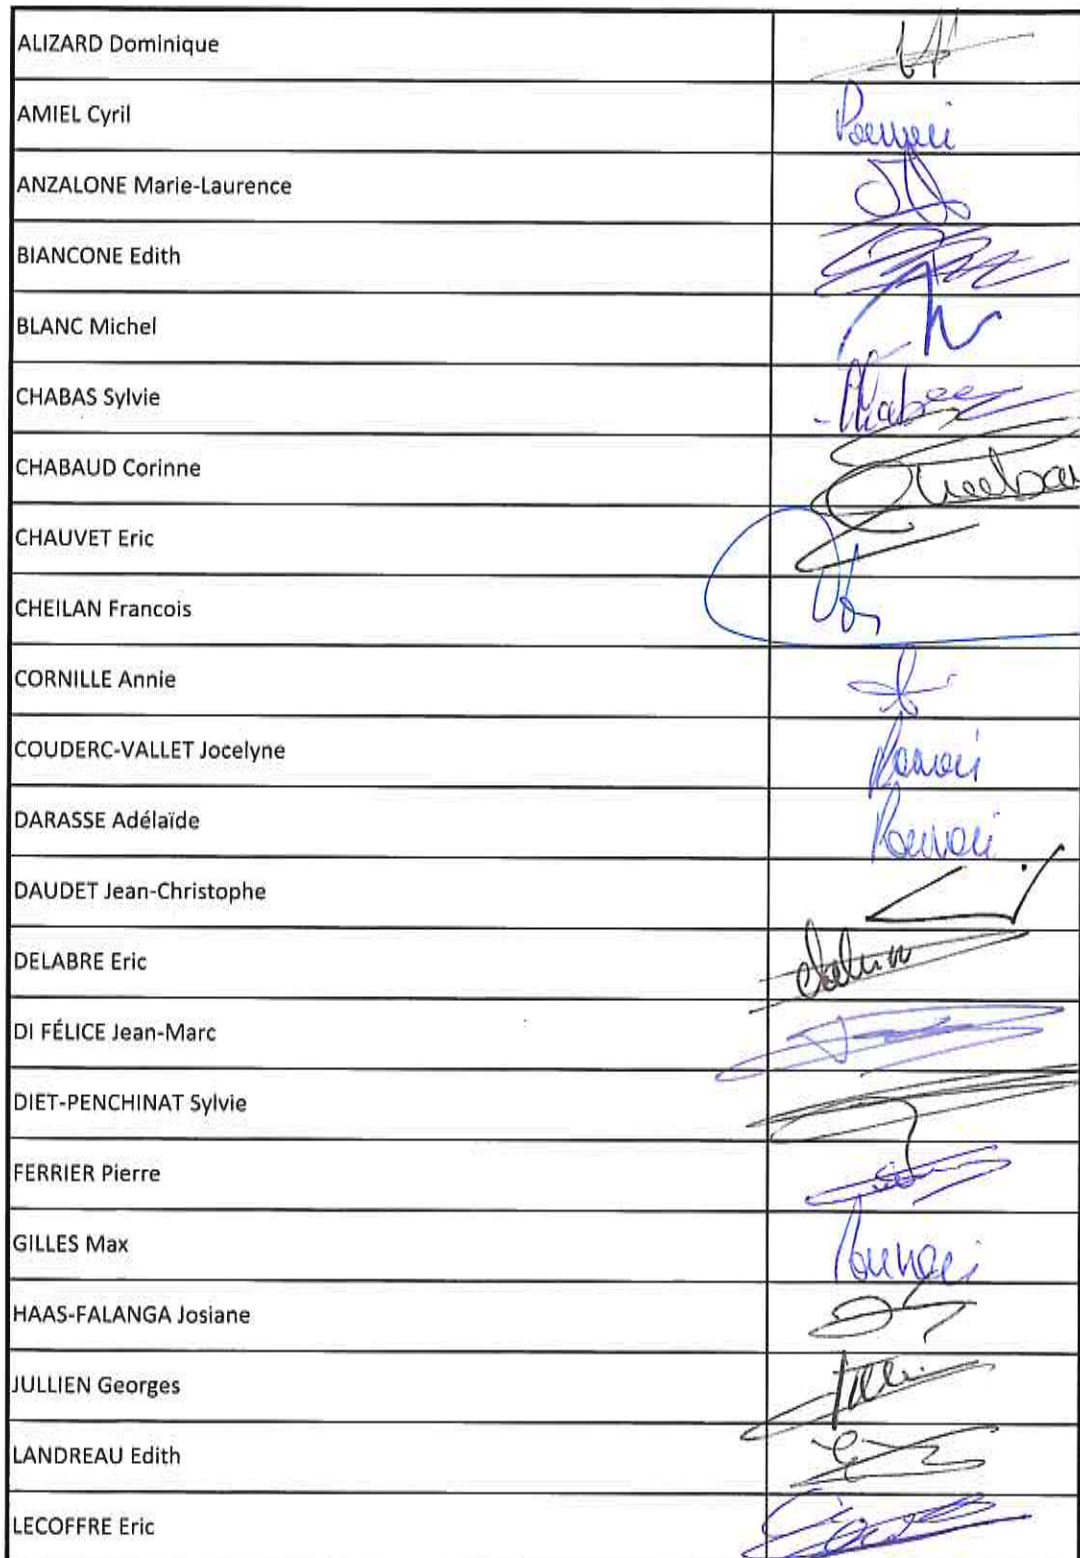 ALIZARD Dominique
AMIEL Cyril
Pouvoir
ANZALONE Marie-Laurence
BIANCONE Edith
BLANC Michel
CHABAS Sylvie
CHABAUD Corinne
CHAUVET Eric
CHEILAN Francois
CORNILLE Annie
COUDERC-VALLET Jocelyne
Pouvoir
DARASSE Adélaïde
Pouvoir
DAUDET Jean-Christophe
DELABRE Eric
DI FÉLICE Jean-Marc
DIET-PENCHINAT Sylvie
FERRIER Pierre
GILLES Max
Pouvoir
HAAS-FALANGA Josiane
JULLIEN Georges
LANDREAU Edith
LECOFFRE Eric